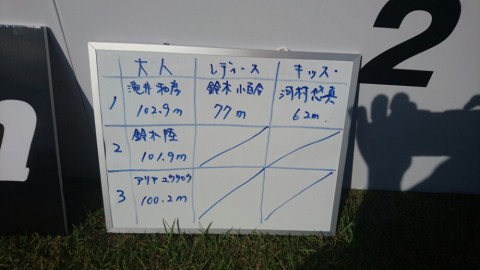 2
大人 レディース キッズ・
1 滝井和彦 鈴木小百合 河村悠真
102.9m 77m 62m.
2 鈴木陸
101.9m
3 アリヤ
100.2m